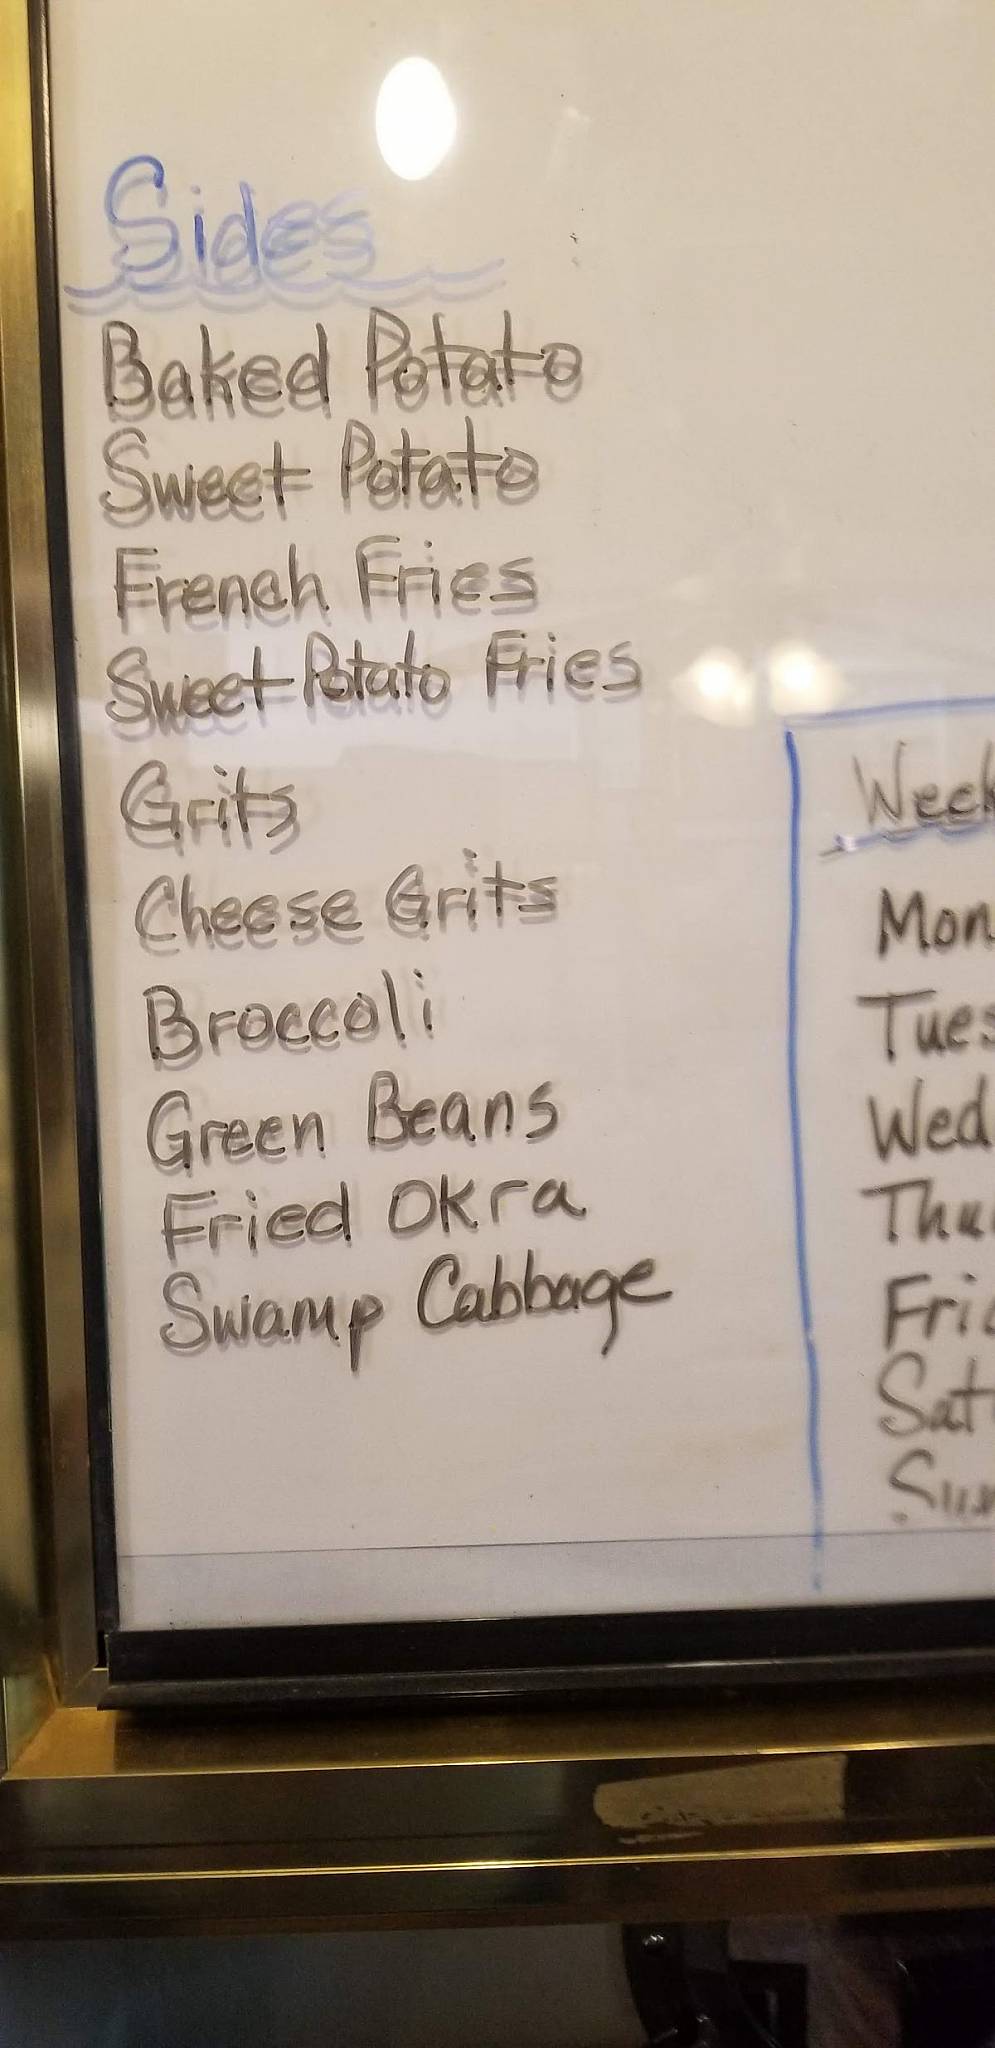 Sides
Baked Potato
Sweet Potato
French Fries
Sweet Potato Fries
Grits
Cheese Grits
Broccoli
Green Beans
Fried Okra
Swamp Cabbage
Week
Mon
Tues
Wed
Thu
Fri
Sat
Sun